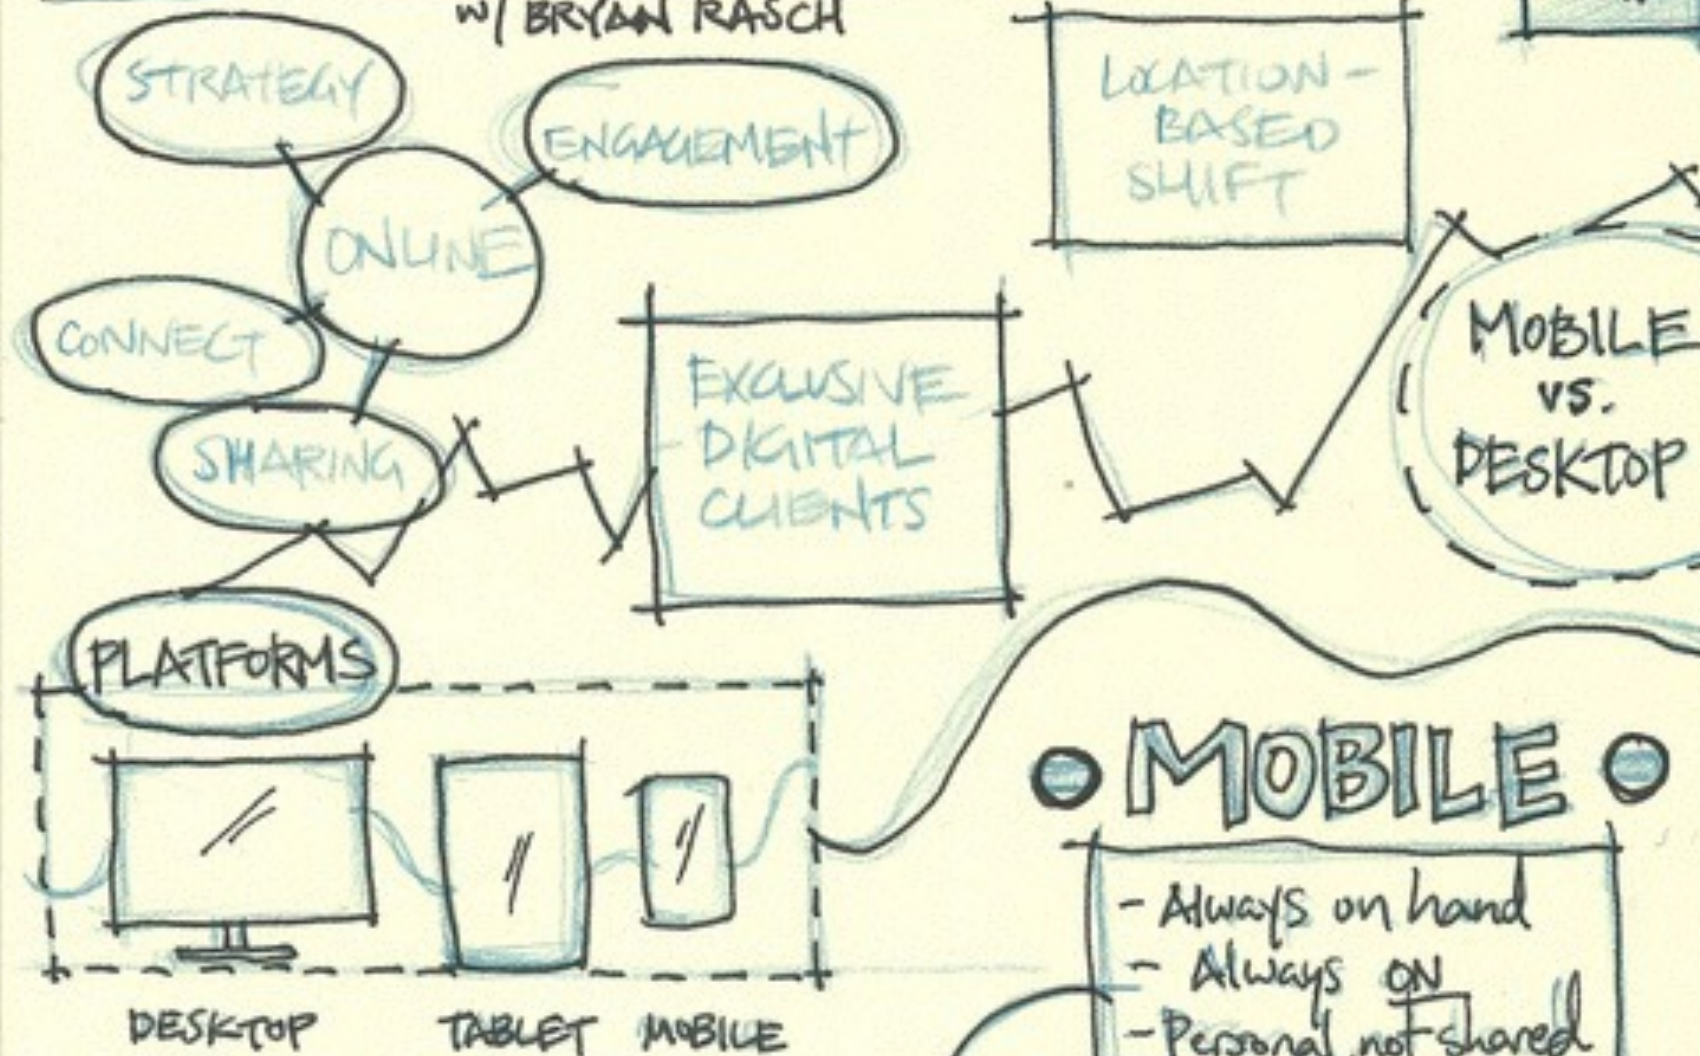 w/ BRYAN RASCH
STRATEGY
ENGAGEMENT
ONLINE
CONNECT
SHARING
LOCATION-
BASED
SHIFT
EXCLUSIVE
DIGITAL
CLIENTS
MOBILE
vs.
DESKTOP
PLATFORMS
DESKTOP
TABLET
MOBILE
MOBILE
- Always on hand
- Always ON
- Personal not shared